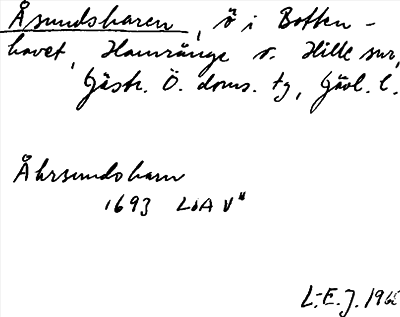 Åsundsharen, ö i Botten-
havet, Hamrånge o. Hille snr,
Gästr. Ö. doms. tg, Gävl. l.
Åhrsundsharn
1693 LSA V
L-E. J. 196